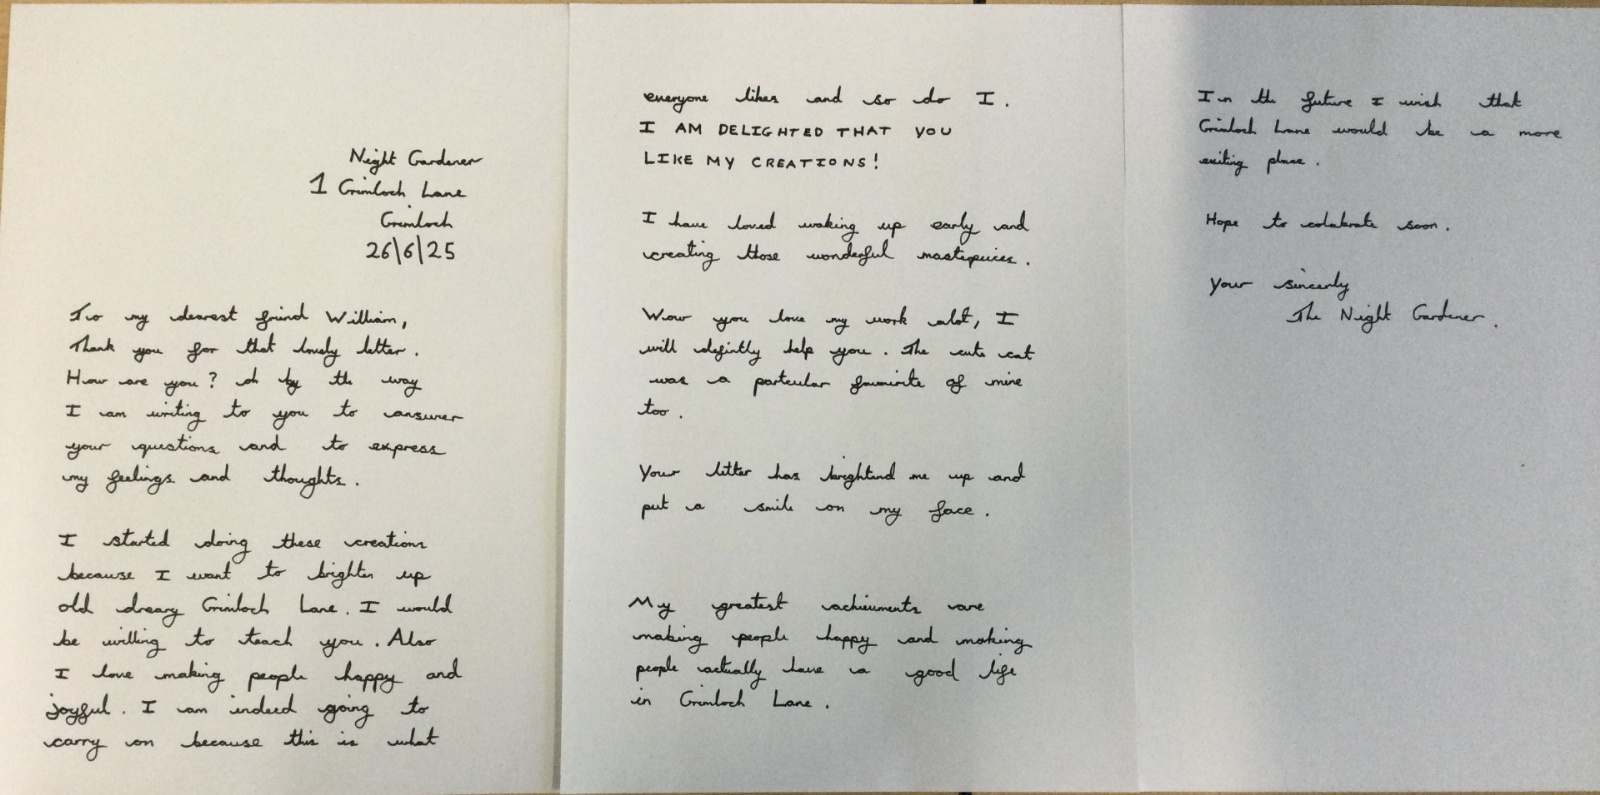 Night Gardener
1 Grimloch Lane
Grimloch
26/6/25
To my dearest freind William,
Thank you for that lovely letter.
How are you? oh by the way
I am writing to you to answer
your questions and to express
my feelings and thoughts.
I started doing these creations
because I want to brighten up
old dreary Grimloch Lane. I would
be willing to teach you. Also
I love making people happy and
joyful. I am indeed going to
carry on because this is what
everyone likes and so do I.
I AM DELIGHTED THAT YOU
LIKE MY CREATIONS!
I have loved waking up early and
creating those wonderful masterpeices.
Wow you love my work alot, I
will defintly help you. The cute cat
was a particular favourite of mine
too.
Your letter has brightend me up and
put a smile on my face.
My greatest achieuments are
making people happy and making
people actually have a good life
in Grimloch Lane.
In the future I wish that
Grimloch Lane would be a more
exiting place.
Hope to colabrate soon.
Your sincerly
The Night Gardener.